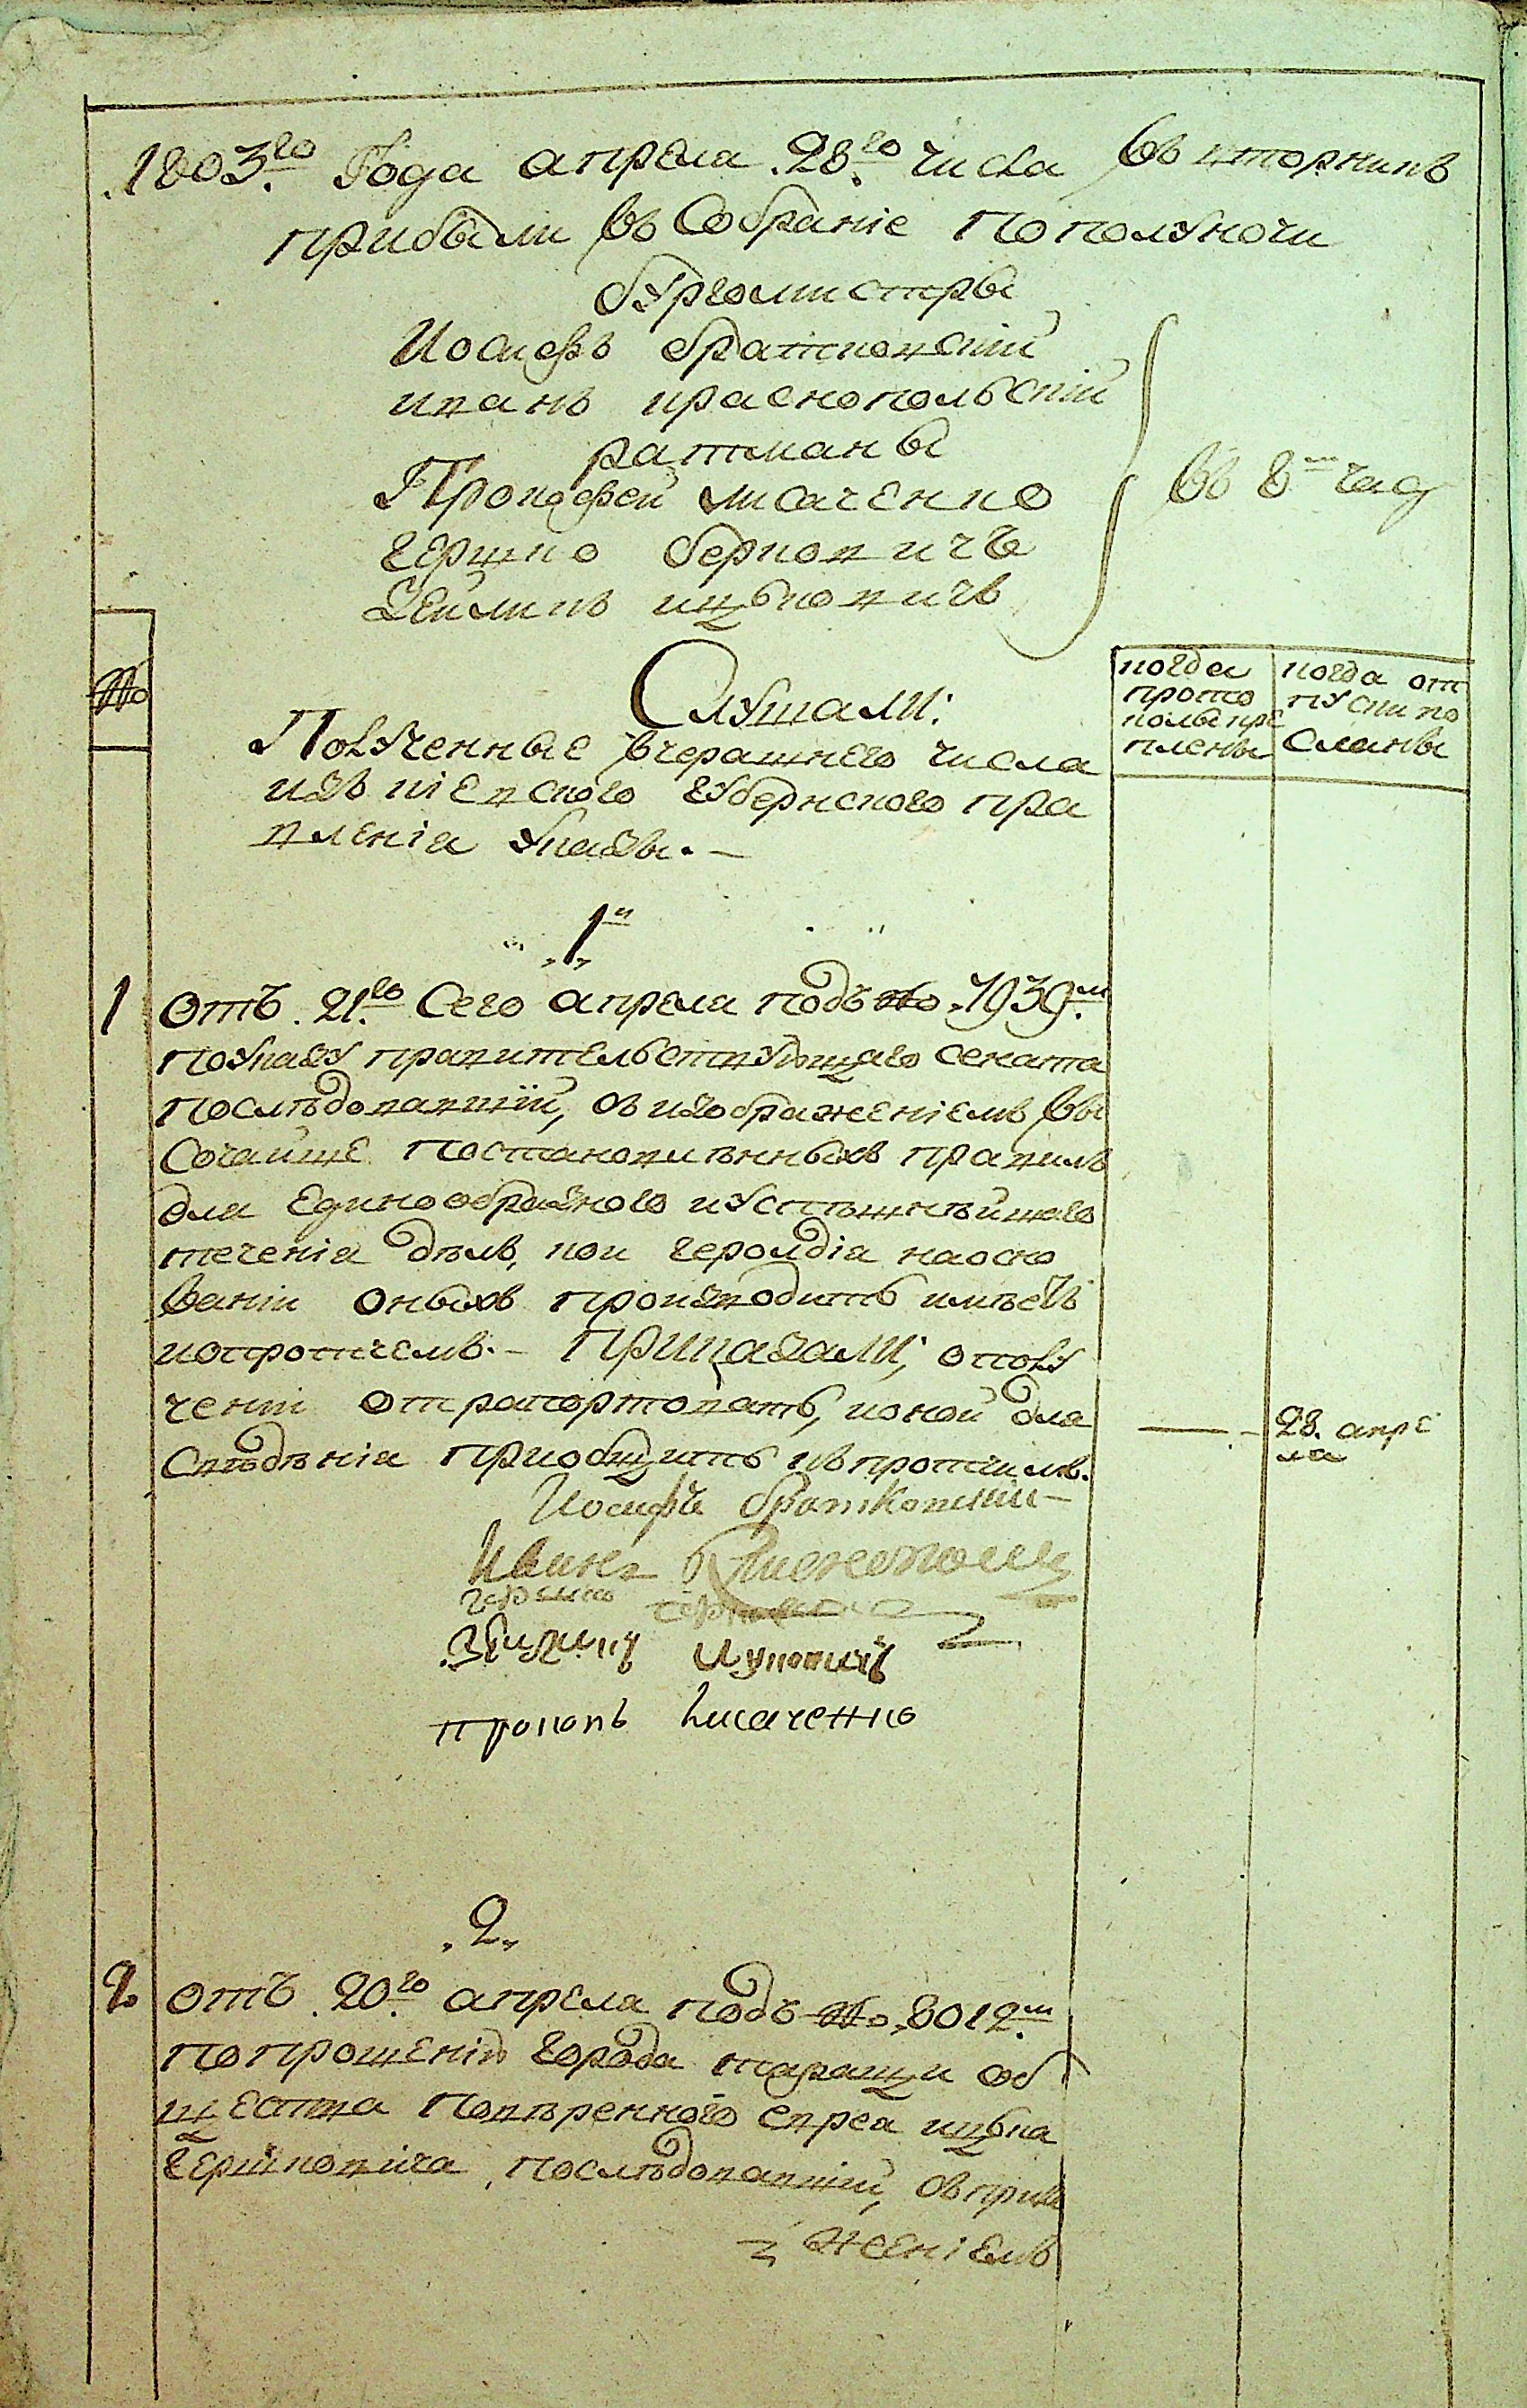 1803го Года апреля 28го числа въ вторникъ
прибыли въ Собраніе пополуночи
бургомистры
Иосифъ братковскій
иванъ краснопольскій
ратманы
Прокофей лисаченко
гершко берковичъ
Зейликъ ицьковичъ
въ 8м часу
№
Слушали:
когда
прото
колы кре
плены
когда от
пуски по
сланы
Полученные вчерашнего числа
изъ кіевского губернского пра
вленія указы. —
1й
1 отъ 21го Сего апреля подъ № 7939м
поуказу правительствующаго сената
последовавшій, съ изображеніемъ вы
сочайше постановлѣнныхъ правилъ
для единообразного иуспѣшнѣйшаго
теченія дѣлъ, кои герольдія наосно
ваніи оныхъ производить имѣетъ
ипротчемъ. — Приказали; ополу
ченіи отрапортовать, ионой для
Свѣдѣнія приобщить къпротчимъ.
28. апре
ля
Иосифъ братковскій
Иванъ
гершко
Зейликъ Ицковичъ
прокопъ лисаченко
2
2 отъ 20го апреля подъ № 8012м
попрошенію города таращи об
щества повѣренного еврея ицька
гершковича, последовавшій, съприло
женіемъ